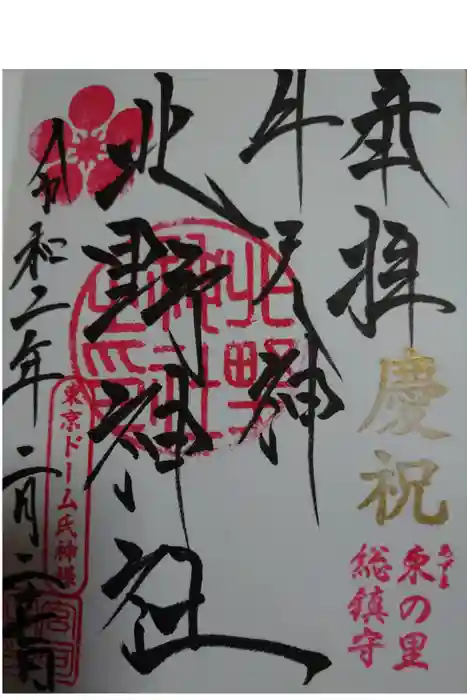 奉拝
慶祝
あずま
東の里
総鎮守
牛天神
北野神社
北野
神社
之印
東京ドーム氏神様
令和二年二月二十日